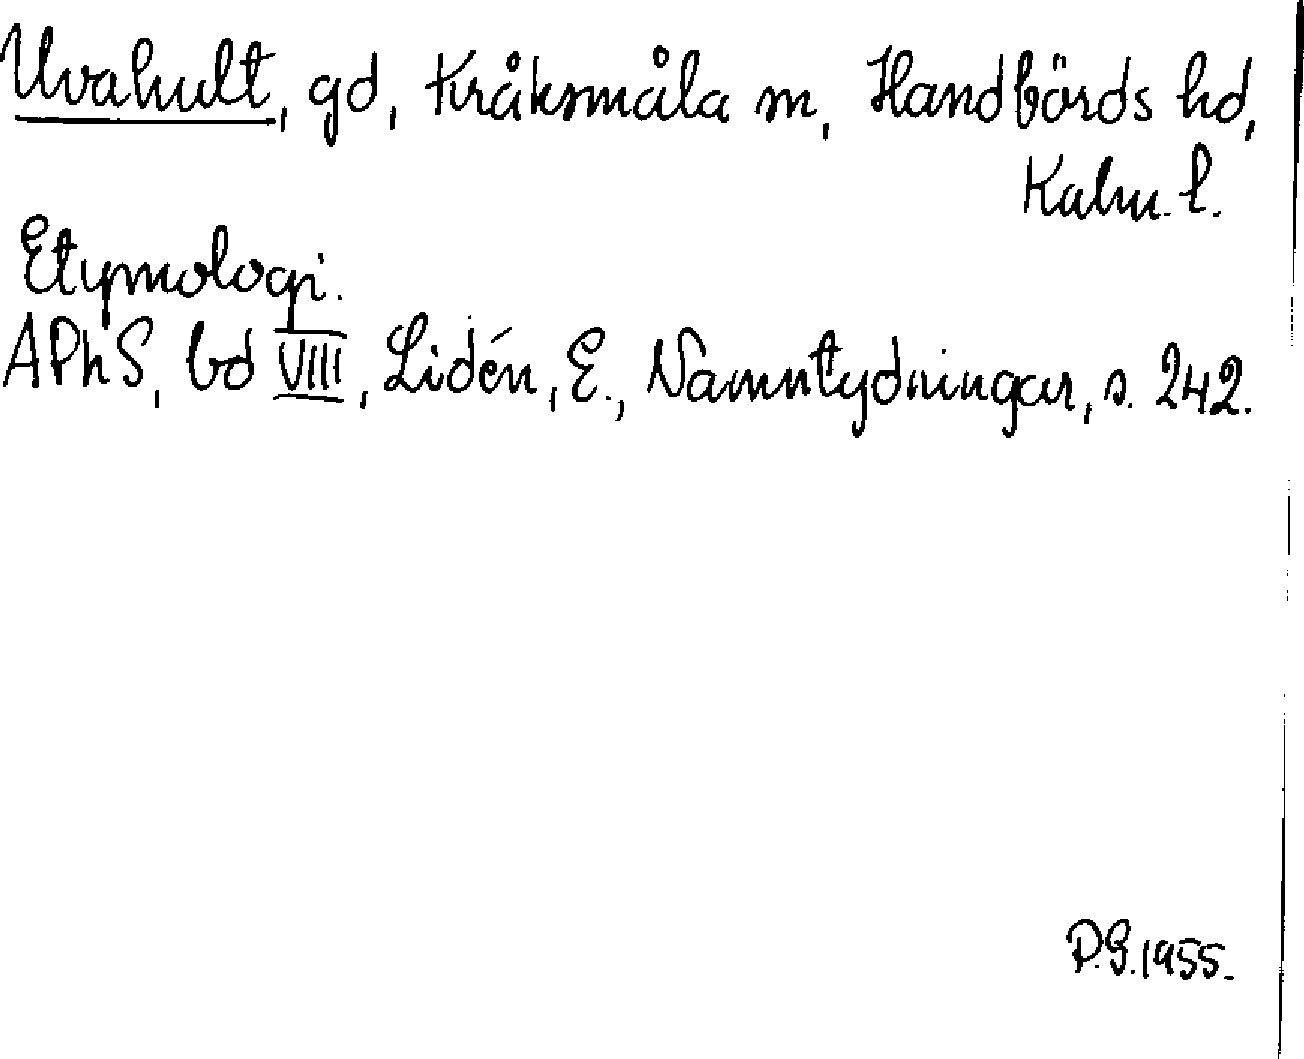 Uvahult, gd, Kråksmåla sn, Handbörds hd,
Kalm. l.
Etymologi.
APhS, bd VIII, Lidén, E., Namntydningar, s. 242.
P.G. 1955.